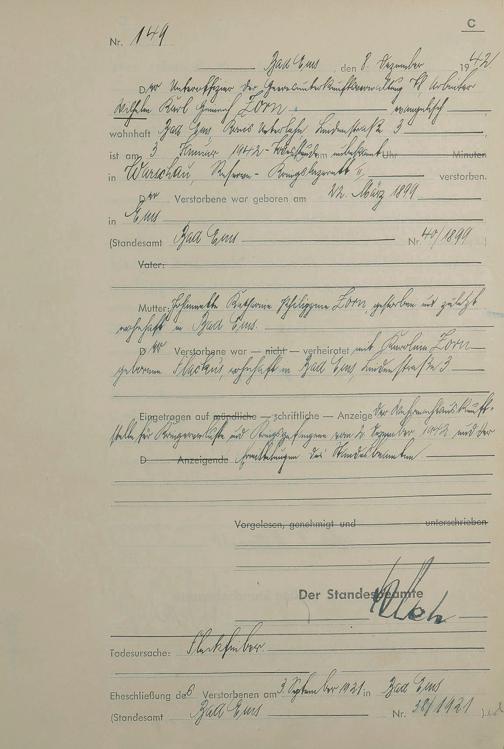 C
Nr. 149
Bad Ems, den 8. Dezember 1942
Der Unteroffizier der Heeresunterkunftverwaltung Arbeiter
Wilhelm Karl Heinrich Zorn evangelisch
wohnhaft Bad Ems Kreis Unterlahn, Lindenstraße 3
ist am 3. Januar 1942 - Todesstunde unbekannt Uhr Minuten
in Warschau, Reserve-Kriegslazarett verstorben.
Der Verstorbene war geboren am 22. März 1899
in Ems
(Standesamt Bad Ems Nr. 40/1899)
Vater:
Mutter: Katharine Philippine Zorn, gestorben und zuletzt
wohnhaft in Bad Ems.
Der Verstorbene war — nicht — verheiratet mit Karoline Zorn
geborene wohnhaft in Bad Ems Lindenstraße 3.
Eingetragen auf mündliche — schriftliche — Anzeige der Wehrmachtauskunft-
stelle für Kriegerverluste und Kriegsgefangene vom 2. Dezember 1942 und der
D Anzeigende Ermittelungen des Standesbeamten
Vorgelesen, genehmigt und unterschrieben
Der Standesbeamte
Todesursache: Fleckfieber
Eheschließung des Verstorbenen am 3. September 1921 in Bad Ems
(Standesamt Bad Ems Nr. 30/1921)